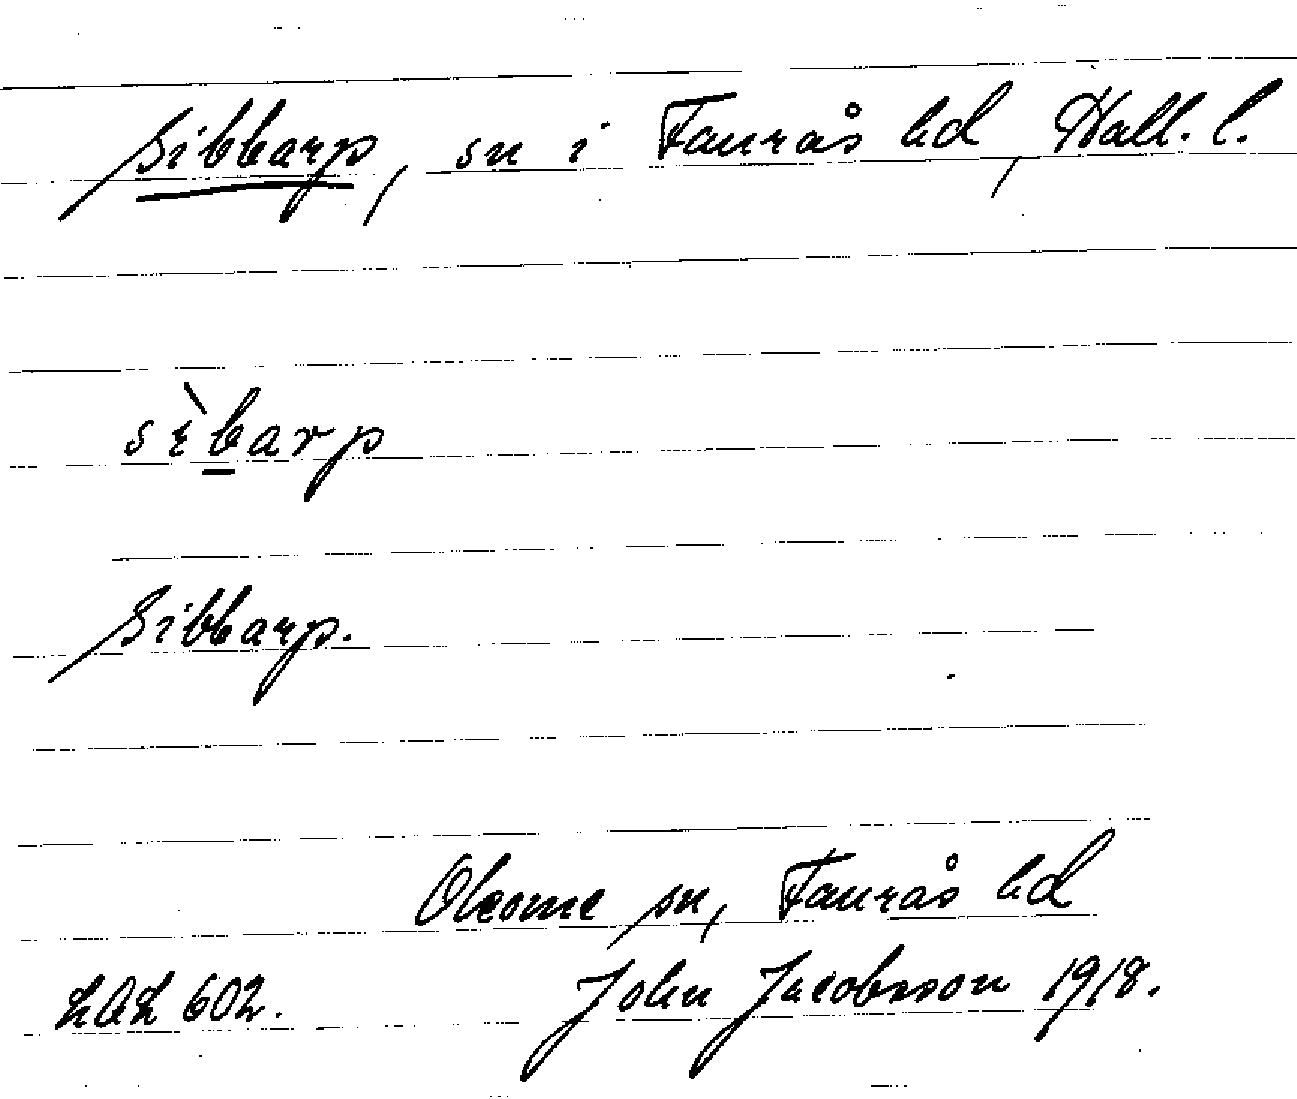 Sibbarp, sn i Faurås hd, Hall. l.
sìbarp
Sibbarp.
Okome sn, Faurås hd
LAL 602. John Jacobsson 1918.